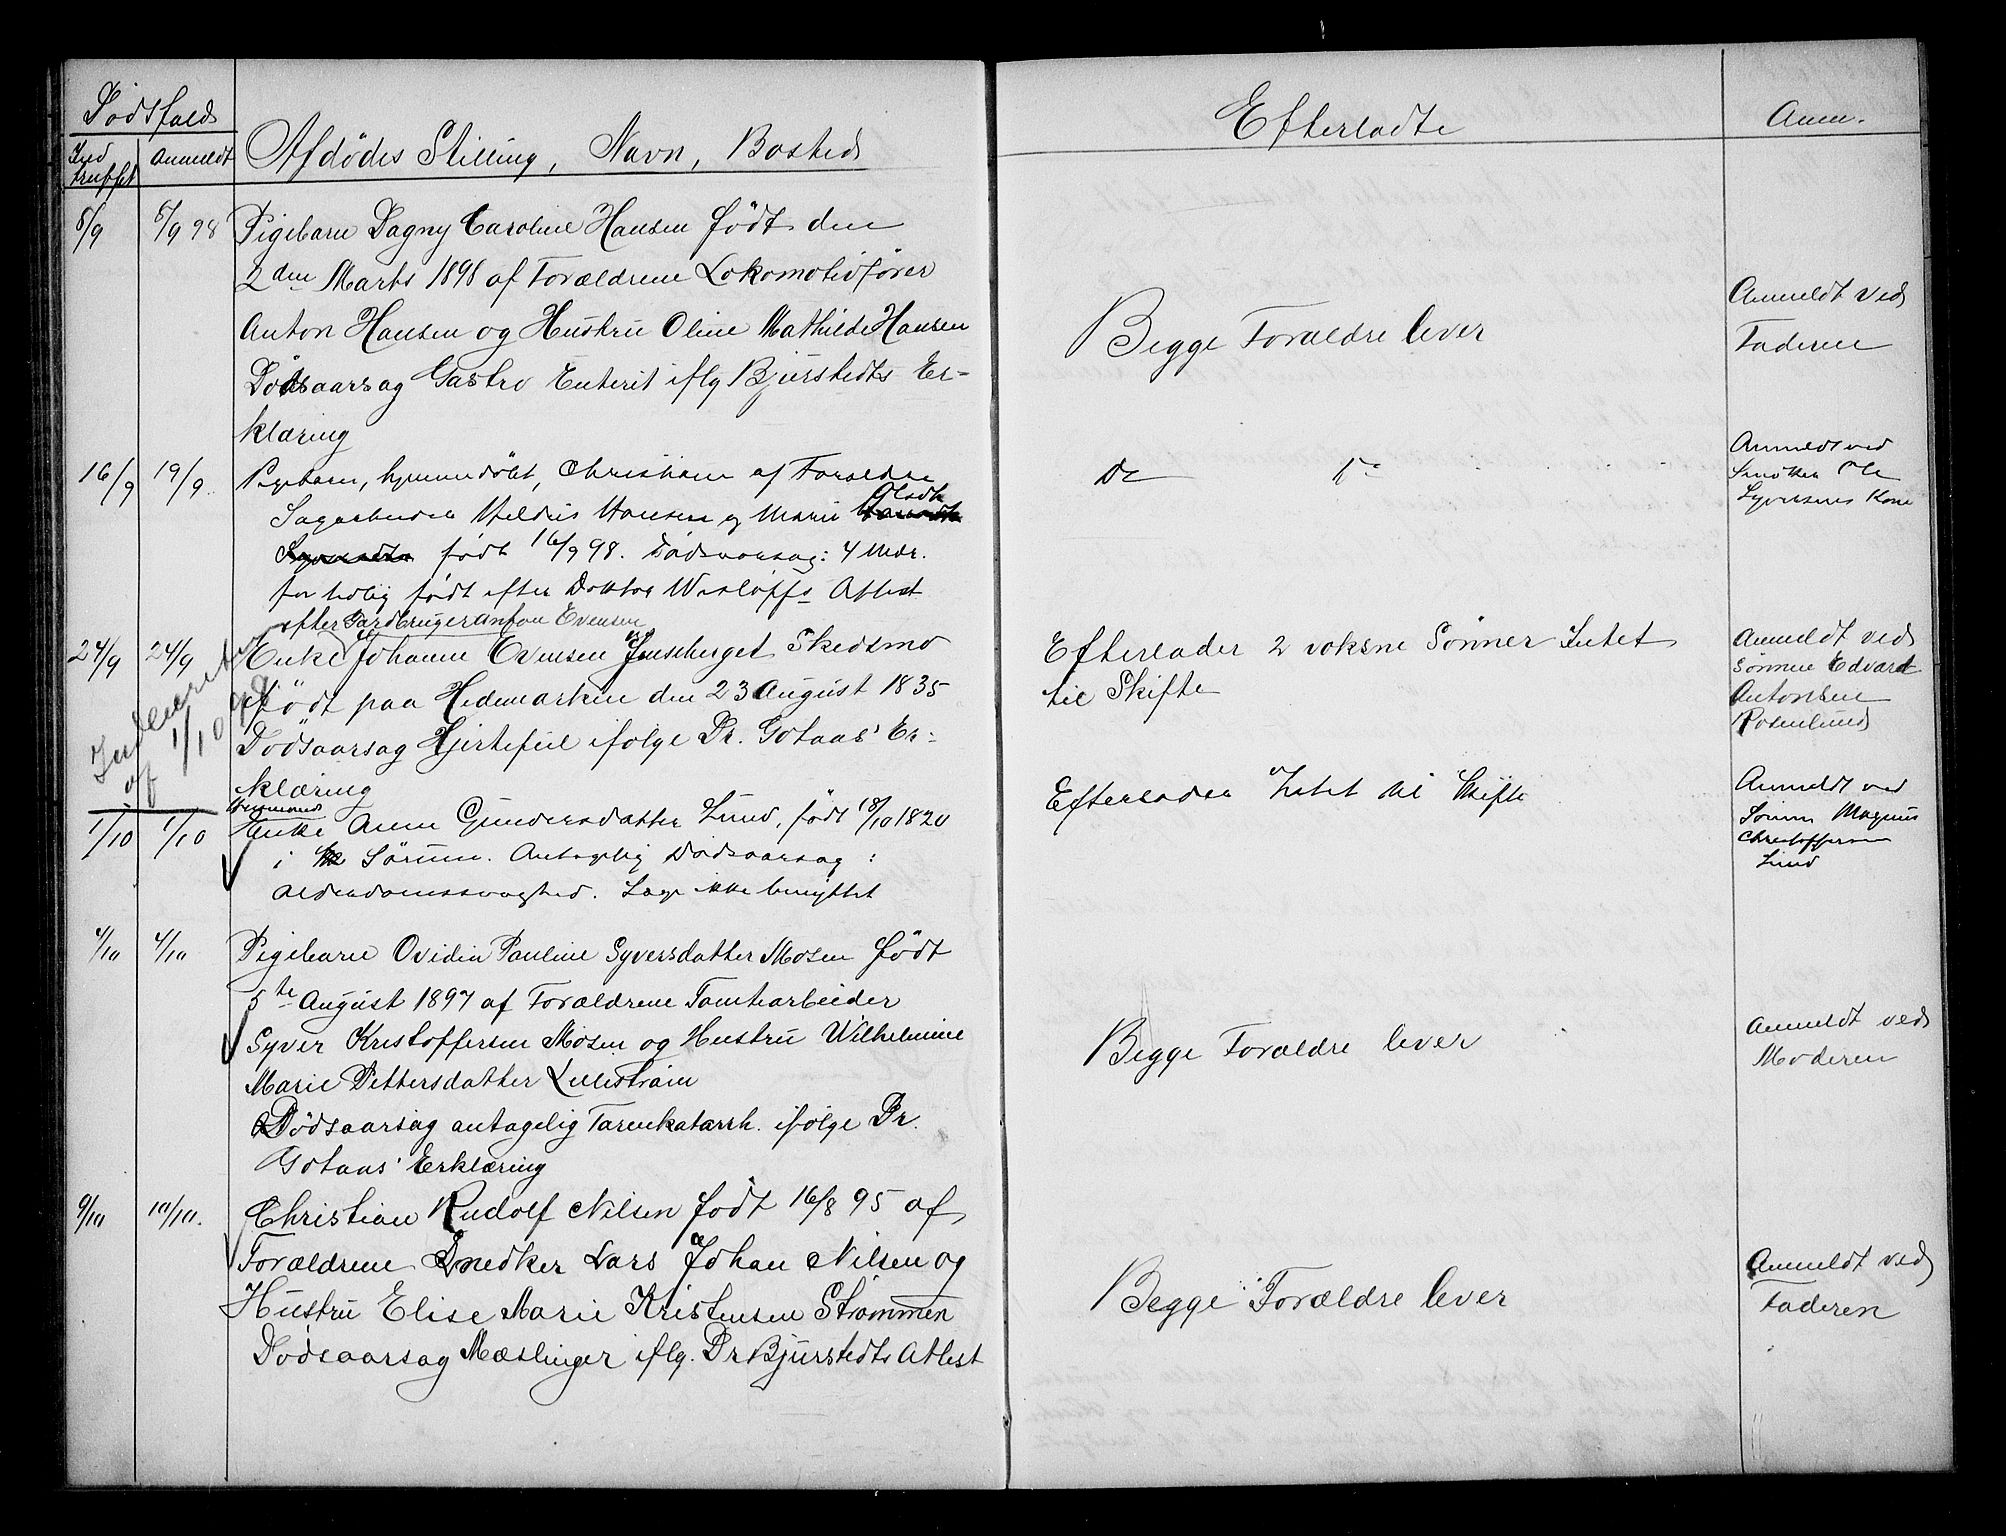 Dødsfald
Ind truffet
Anmeldt
Afdødes Stilling, Navn, Bosted
Efterladte
Anm.
5/9 5/9 98 Pigebarn Dagny Caroline Hansen født den
2den Marts 1898 af Forældrene Lokomotivfører
Anton Hansen og Hustru Oline Mathilde Hansen
Dødsaarsag Gastro Enterit iflg Bjurstedts Er-
klæring
Begge Forældre lever
Anmeldt ved
Faderen
16/9 19/9. Pigebarn, hjemmedøbt, Christiane af Forældre
Sagarbeider Hansen og Marie
født 16/9 98. Dødsaarsag: 4 Mdr.
for tidlig født efter Doktor Wisløffs Attest
Do Do
Anmeldt ved
Ole
Syversens Kone
efter Gardbruger Anton Evensen
24/9 24/9 Enke Johanne Evensen Skedsmo
Født paa Hedemarken den 23 August 1835
Dødsaarsag Hjertefeil ifølge Dr. Gotaas' Er-
klæring
Efterlader 2 voksne Sønner Intet
til Skifte
Anmeldt ved
Sønnen Edvard
Antonsen
Rosenlund
Indberettet
af 1/10 98
1/10 1/10 Enke Anne Gundersdatter Lund, født 18/10 1820
i Sørum. Antagelig Dødsaarsag:
Alderdomssvaghed. Læge ikke benyttet
Efterlader Intet til Skifte
Anmeldt ved
Sønnen Magnus
Christoffersen
Lund
4/10 4/10 Pigebarn Ovidia Pauline Syversdatter Mosen født
5te August 1897 af Forældrene Tomtearbeider
Syver Kristoffersen Mosen og Hustru Wilhelmine
Marie Pettersdatter Lillestrøm
Dødsaarsag antagelig Tarmkatarrh. ifølge Dr.
Gotaas' Erklæring
Begge Forældre lever
Anmeldt ved
Moderen
9/10 10/10. Christian Rudolf Nilsen født 16/8 95 af
Forældrene Snedker Lars Johan Nilsen og
Hustru Elise Marie Kristensen Strømmen
Dødsaarsag Mæslinger iflg. Dr Bjurstedts Attest
Begge Forældre lever
Anmeldt ved
Faderen